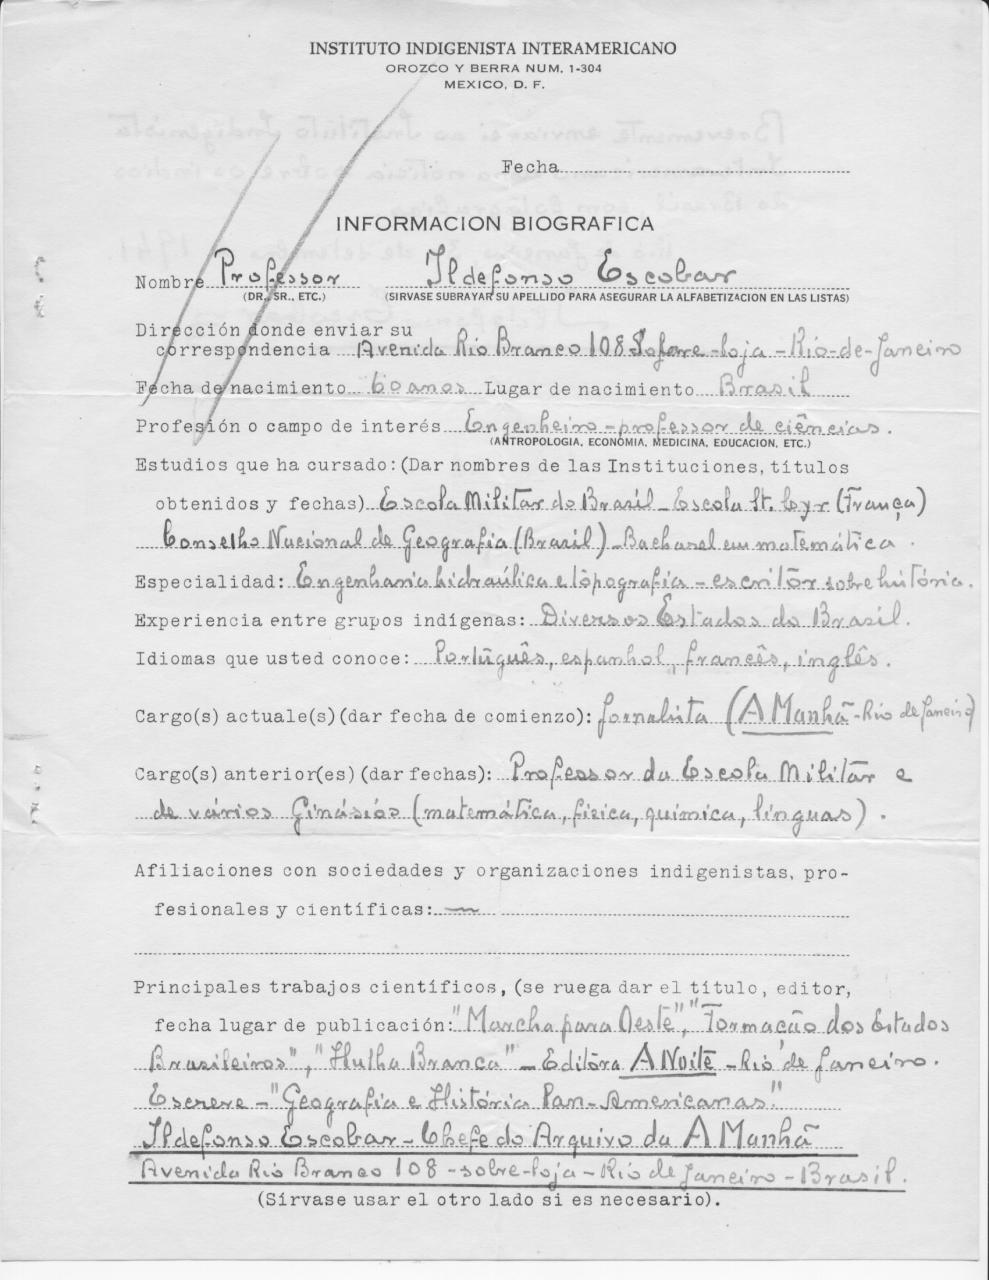 INSTITUTO INDIGENISTA INTERAMERICANO
OROZCO Y BERRA NUM. 1-304
MEXICO, D. F.
Fecha
INFORMACION BIOGRAFICA
Nombre Professor Ildefonso Escobar
(DR., SR., ETC.) (SIRVASE SUBRAYAR SU APELLIDO PARA ASEGURAR LA ALFABETIZACION EN LAS LISTAS)
Dirección donde enviar su
correspondencia Avenida Rio Branco 108 -loja - Rio-de-Janeiro
Fecha de nacimiento 60 anos Lugar de nacimiento Brasil
Profesión o campo de interés Engenheiro-professor de ciências.
(ANTROPOLOGIA, ECONOMIA, MEDICINA, EDUCACION, ETC.)
Estudios que ha cursado: (Dar nombres de las Instituciones, títulos
obtenidos y fechas) Escola Militar do Brasil - Escola St. Cyr (França)
Conselho Nacional de Geografia (Brasil) - Bacharel em matemática.
Especialidad: Engenharia hidraúlica e topografia - escritôr sobre história.
Experiencia entre grupos indígenas: Diversos Estados do Brasil.
Idiomas que usted conoce: Portuguës, espanhol, francês, inglês.
Cargo(s) actuale(s) (dar fecha de comienzo): Jornalista (A Manhã - Rio de Janeiro)
Cargo(s) anterior(es) (dar fechas): Professor da Escola Militár e
de vários Ginásios (matemática, fisica, quimica, linguas).
Afiliaciones con sociedades y organizaciones indigenistas, pro-
fesionales y científicas: —
Principales trabajos científicos, (se ruega dar el título, editor,
fecha lugar de publicación: "Marcha para Oeste", "Formação dos Estados
Brasileiros", "Hulha Branca" - Editôra A Noite - Rio de Janeiro.
Escreve - "Geografia e História Pan-Americanas."
Ildefonso Escobar - Chefe do Arquivo da A Manhã
Avenida Rio Branco 108 - sobre-loja - Rio de Janeiro - Brasil.
(Sírvase usar el otro lado si es necesario).